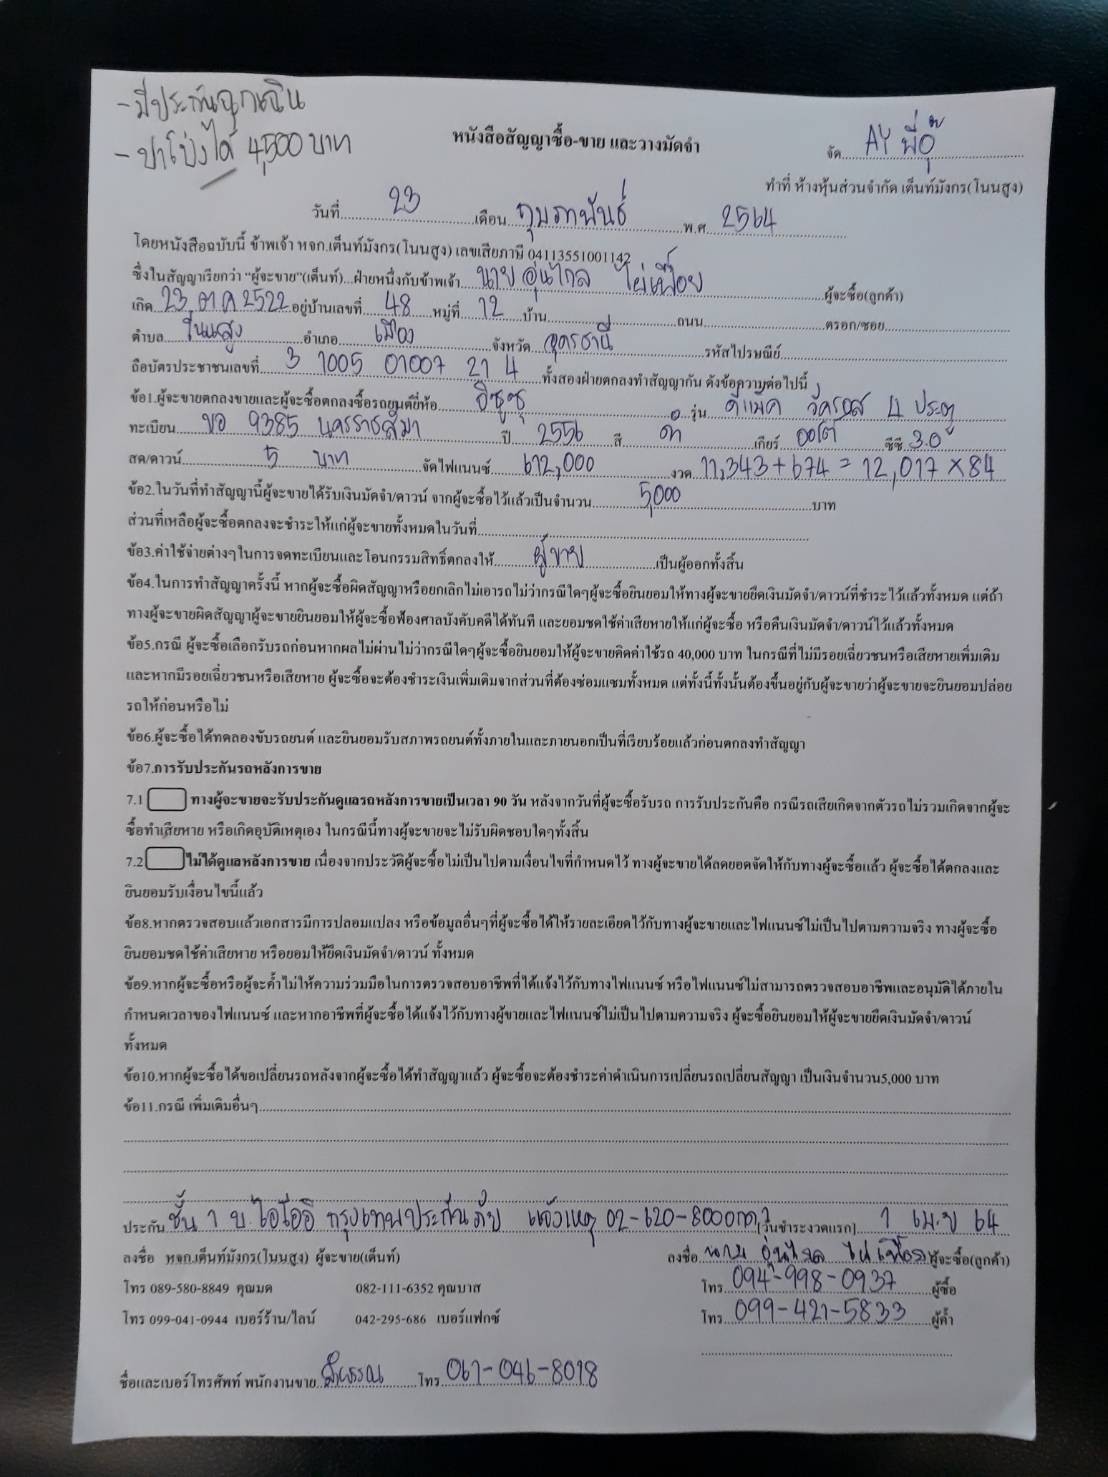 - มีประกันฉุกเฉิน
- ปาโป่งได้ 4,500 บาท
หนังสือสัญญาซื้อ-ขาย และวางมัดจำ
จัด AY พี่อุ๊
ทำที่ ห้างหุ้นส่วนจำกัด เต็นท์มังกร(โนนสูง)
วันที่ 23 เดือน กุมภาพันธ์ พ.ศ. 2564
โดยหนังสือฉบับนี้ ข้าพเจ้า หจก.เต็นท์มังกร(โนนสูง) เลขเสียภาษี 04113551001142
ซึ่งในสัญญาเรียกว่า "ผู้จะขาย"(เต็นท์)...ฝ่ายหนึ่งกับข้าพเจ้า นาย อุ่นไกล ไผ่เฟื้อย ผู้จะซื้อ(ลูกค้า)
เกิด 23 ตค 2522 อยู่บ้านเลขที่ 48 หมู่ที่ 12 บ้าน ถนน ตรอก/ซอย
ตำบล โนนสูง อำเภอ เมือง จังหวัด อุดรธานี รหัสไปรษณีย์
ถือบัตรประชาชนเลขที่ 3 1005 01007 21 4 ทั้งสองฝ่ายตกลงทำสัญญากัน ดังข้อความต่อไปนี้
ข้อ1.ผู้จะขายตกลงขายและผู้จะซื้อตกลงซื้อรถยนต์ยี่ห้อ อีซูซุ รุ่น ดีแม็ค วีครอส 4 ประตู
ทะเบียน ขอ 9385 นครราชสีมา ปี 2556 สี ดำ เกียร์ ออโต้ ซีซี 3.0
สด/ดาวน์ 5 บาท จัดไฟแนนซ์ 612,000 งวด 11,343+674 = 12,017 x 84
ข้อ2.ในวันที่ทำสัญญานี้ผู้จะขายได้รับเงินมัดจำ/ดาวน์ จากผู้จะซื้อไว้แล้วเป็นจำนวน 5,000 บาท
ส่วนที่เหลือผู้จะซื้อตกลงจะชำระให้แก่ผู้จะขายทั้งหมดในวันที่
ข้อ3.ค่าใช้จ่ายต่างๆในการจดทะเบียนและโอนกรรมสิทธิ์ตกลงให้ ผู้ขาย เป็นผู้ออกทั้งสิ้น
ข้อ4.ในการทำสัญญาครั้งนี้ หากผู้จะซื้อผิดสัญญาหรือยกเลิกไม่เอารถไม่ว่ากรณีใดๆผู้จะซื้อยินยอมให้ทางผู้จะขายยึดเงินมัดจำ/ดาวน์ที่ชำระไว้แล้วทั้งหมด แต่ถ้า
ทางผู้จะขายผิดสัญญาผู้จะขายยินยอมให้ผู้จะซื้อฟ้องศาลบังคับคดีได้ทันที และยอมชดใช้ค่าเสียหายให้แก่ผู้จะซื้อ หรือคืนเงินมัดจำ/ดาวน์ไว้แล้วทั้งหมด
ข้อ5.กรณี ผู้จะซื้อเลือกรับรถก่อนหากผลไม่ผ่านไม่ว่ากรณีใดๆผู้จะซื้อยินยอมให้ผู้จะขายคิดค่าใช้รถ 40,000 บาท ในกรณีที่ไม่มีรอยเฉี่ยวชนหรือเสียหายเพิ่มเติม
และหากมีรอยเฉี่ยวชนหรือเสียหาย ผู้จะซื้อจะต้องชำระเงินเพิ่มเติมจากส่วนที่ต้องซ่อมแซมทั้งหมด แต่ทั้งนี้ทั้งนั้นต้องขึ้นอยู่กับผู้จะขายว่าผู้จะขายจะยินยอมปล่อย
รถให้ก่อนหรือไม่
ข้อ6.ผู้จะซื้อได้ทดลองขับรถยนต์ และยินยอมรับสภาพรถยนต์ทั้งภายในและภายนอกเป็นที่เรียบร้อยแล้วก่อนตกลงทำสัญญา
ข้อ7.การรับประกันรถหลังการขาย
7.1 ทางผู้จะขายจะรับประกันดูแลรถหลังการขายเป็นเวลา 90 วัน หลังจากวันที่ผู้จะซื้อรับรถ การรับประกันคือ กรณีรถเสียเกิดจากตัวรถไม่รวมเกิดจากผู้จะ
ซื้อทำเสียหาย หรือเกิดอุบัติเหตุเอง ในกรณีนี้ทางผู้จะขายจะไม่รับผิดชอบใดๆทั้งสิ้น
7.2 ไม่ได้ดูแลหลังการขาย เนื่องจากประวัติผู้จะซื้อไม่เป็นไปตามเงื่อนไขที่กำหนดไว้ ทางผู้จะขายได้ลดยอดจัดให้กับทางผู้จะซื้อแล้ว ผู้จะซื้อได้ตกลงและ
ยินยอมรับเงื่อนไขนี้แล้ว
ข้อ8.หากตรวจสอบแล้วเอกสารมีการปลอมแปลง หรือข้อมูลอื่นๆที่ผู้จะซื้อได้ให้รายละเอียดไว้กับทางผู้จะขายและไฟแนนซ์ไม่เป็นไปตามความจริง ทางผู้จะซื้อ
ยินยอมชดใช้ค่าเสียหาย หรือยอมให้ยึดเงินมัดจำ/ดาวน์ ทั้งหมด
ข้อ9.หากผู้จะซื้อหรือผู้จะค้ำไม่ให้ความร่วมมือในการตรวจสอบอาชีพที่ได้แจ้งไว้กับทางไฟแนนซ์ หรือไฟแนนซ์ไม่สามารถตรวจสอบอาชีพและอนุมัติได้ภายใน
กำหนดเวลาของไฟแนนซ์ และหากอาชีพที่ผู้จะซื้อได้แจ้งไว้กับทางผู้ขายและไฟแนนซ์ไม่เป็นไปตามความจริง ผู้จะซื้อยินยอมให้ผู้จะขายยึดเงินมัดจำ/ดาวน์
ทั้งหมด
ข้อ10.หากผู้จะซื้อได้ขอเปลี่ยนรถหลังจากผู้จะซื้อได้ทำสัญญาแล้ว ผู้จะซื้อจะต้องชำระค่าดำเนินการเปลี่ยนรถเปลี่ยนสัญญา เป็นเงินจำนวน5,000 บาท
ข้อ11.กรณี เพิ่มเติมอื่นๆ
ประกัน ชั้น 1 บ.ไอโออิ กรุงเทพประกันภัย แจ้งเหตุ 02-620-8000 (วันชำระงวดแรก) 1 เม.ย 64
ลงชื่อ หจก.เต็นท์มังกร(โนนสูง) ผู้จะขาย(เต็นท์) ลงชื่อ นาย อุ่นไกล ไผ่เฟื้อย ผู้จะซื้อ(ลูกค้า)
โทร 089-580-8849 คุณมด 082-111-6352 คุณบาส โทร 094-998-0937 ผู้ซื้อ
โทร 099-041-0944 เบอร์ร้าน/ไลน์ 042-295-686 เบอร์แฟกซ์ โทร 099-421-5833 ผู้ค้ำ
ชื่อและเบอร์โทรศัพท์ พนักงานขาย โทร 061-046-8018